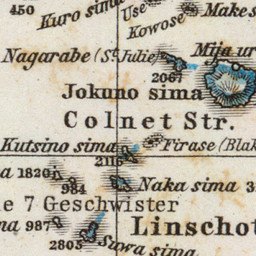 450
Kuro sima
Use
Kowose
Make s
Nagarabe (St. Julie)
Mija ur
2067
Jokuno sima
Colnet Str.
Kutsino sima
Firase (Blak
2116
a 1820
984
Naka sima 3
e 7 Geschwister
na 987
Linschot
2805
Suwa sima